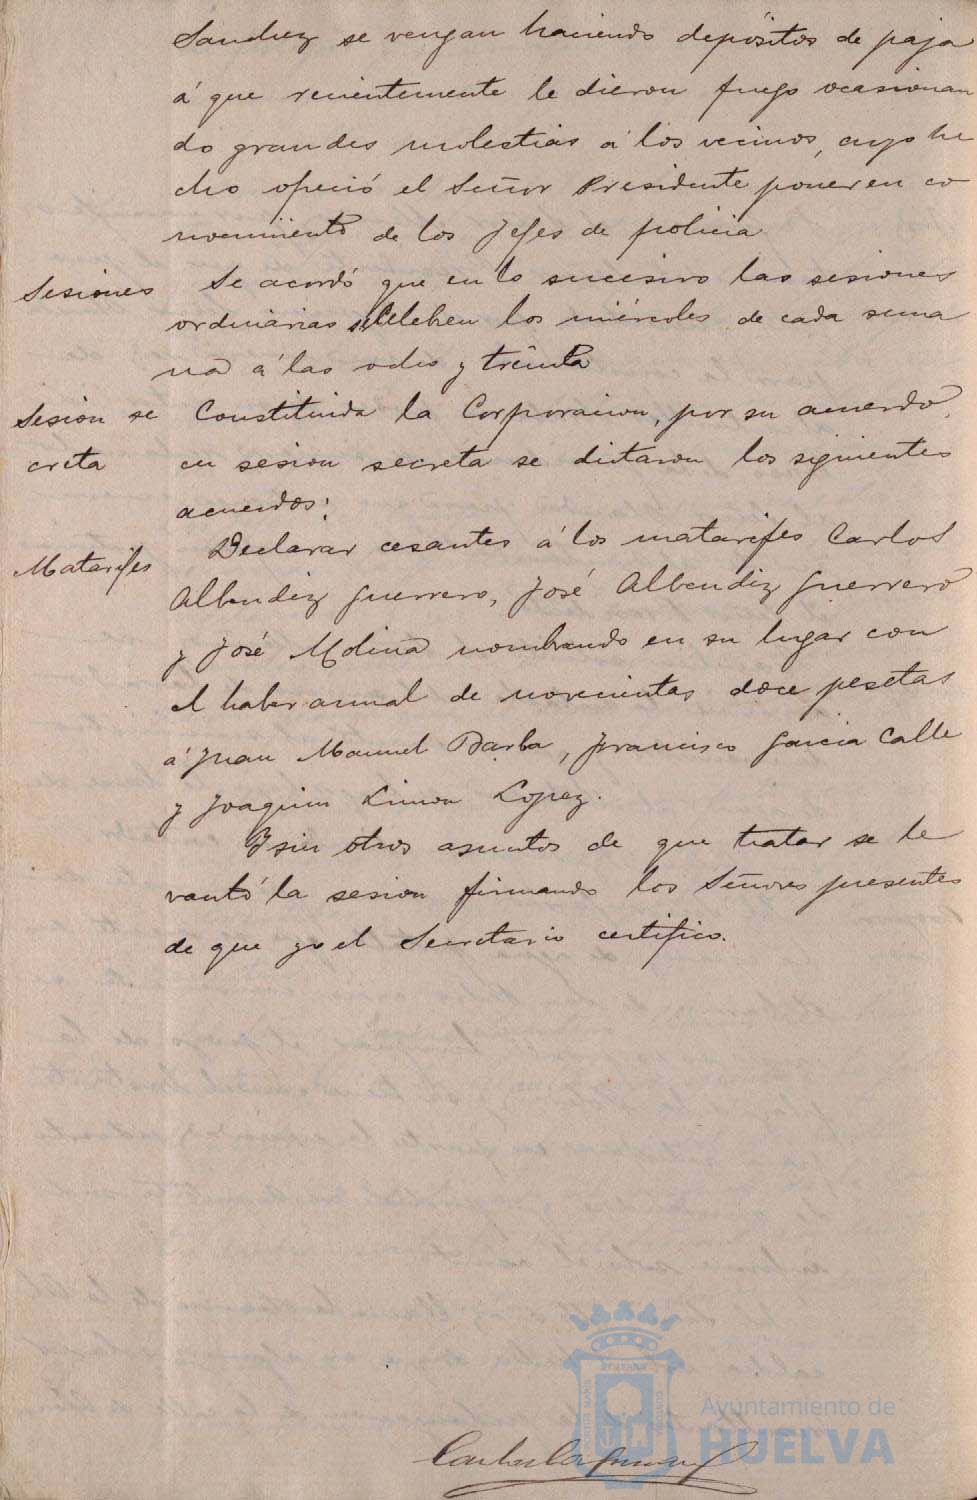 Sanchez se vengan haciendo depósitos de paja
á que recientemente le dieron fuego ocasionan
do grandes molestias á los vecinos, cuyo he
cho ofreció el Señor Presidente poner en co
nocimiento de los Jefes de policia
Sesiones Se acordó que en lo sucesivo las sesiones
ordinarias se celebren los miércoles de cada sema
na á las ocho y treinta
Sesion se Constituida la Corporacion, por su acuerdo,
creta en sesion secreta se dictaron los siguientes
acuerdos:
Matarifes Declarar cesantes á los matarifes Carlos
Albendiz Guerrero, José Albendiz Guerrero
y José Molina nombrando en su lugar con
el haber anual de novecientas doce pesetas
á Juan Manuel Barba, Francisco Garcia Calle
y Joaquin Limon Lopez.
Y sin otros asuntos de que tratar se le
vantó la sesion firmando los Señores presentes
de que yo el Secretario certifico.
Ayuntamiento de
HUELVA
Carlos